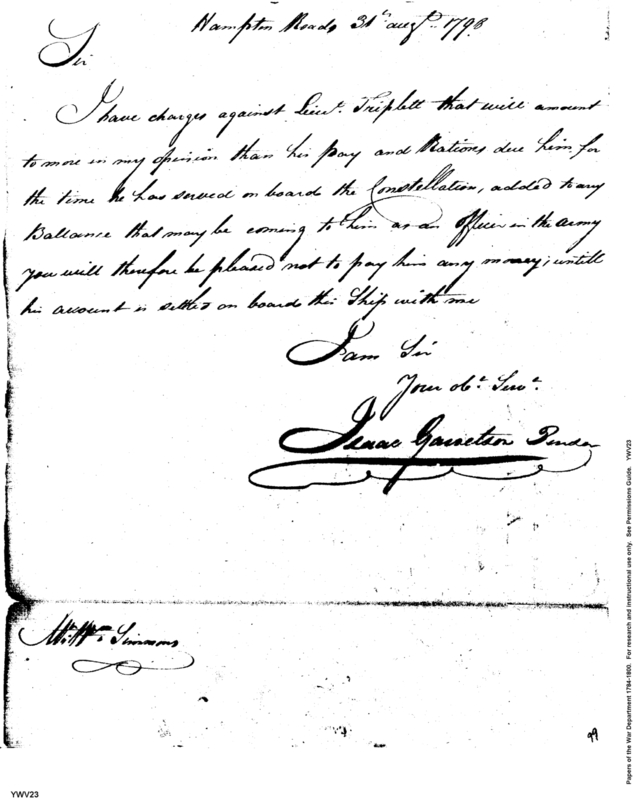 Hampton Roads 31st augt. 1798
Sir
I have charges against Lieut. Triplett that will amount
to more in my opinion than his pay and Rations due him for
the time he has served on board the Constellation, added to any
Ballance that may be coming to him as an officer in the army
you will therefore be pleased not to pay him any money, untill
his account is settled on board this Ship with me
I am Sir
Your obt. Servt.
Isaac Garretson Purser
Mr. Wm. Simmons
99
YWV23
Papers of the War Department 1784-1800. For research and instructional use only. See Permissions Guide. YWV23